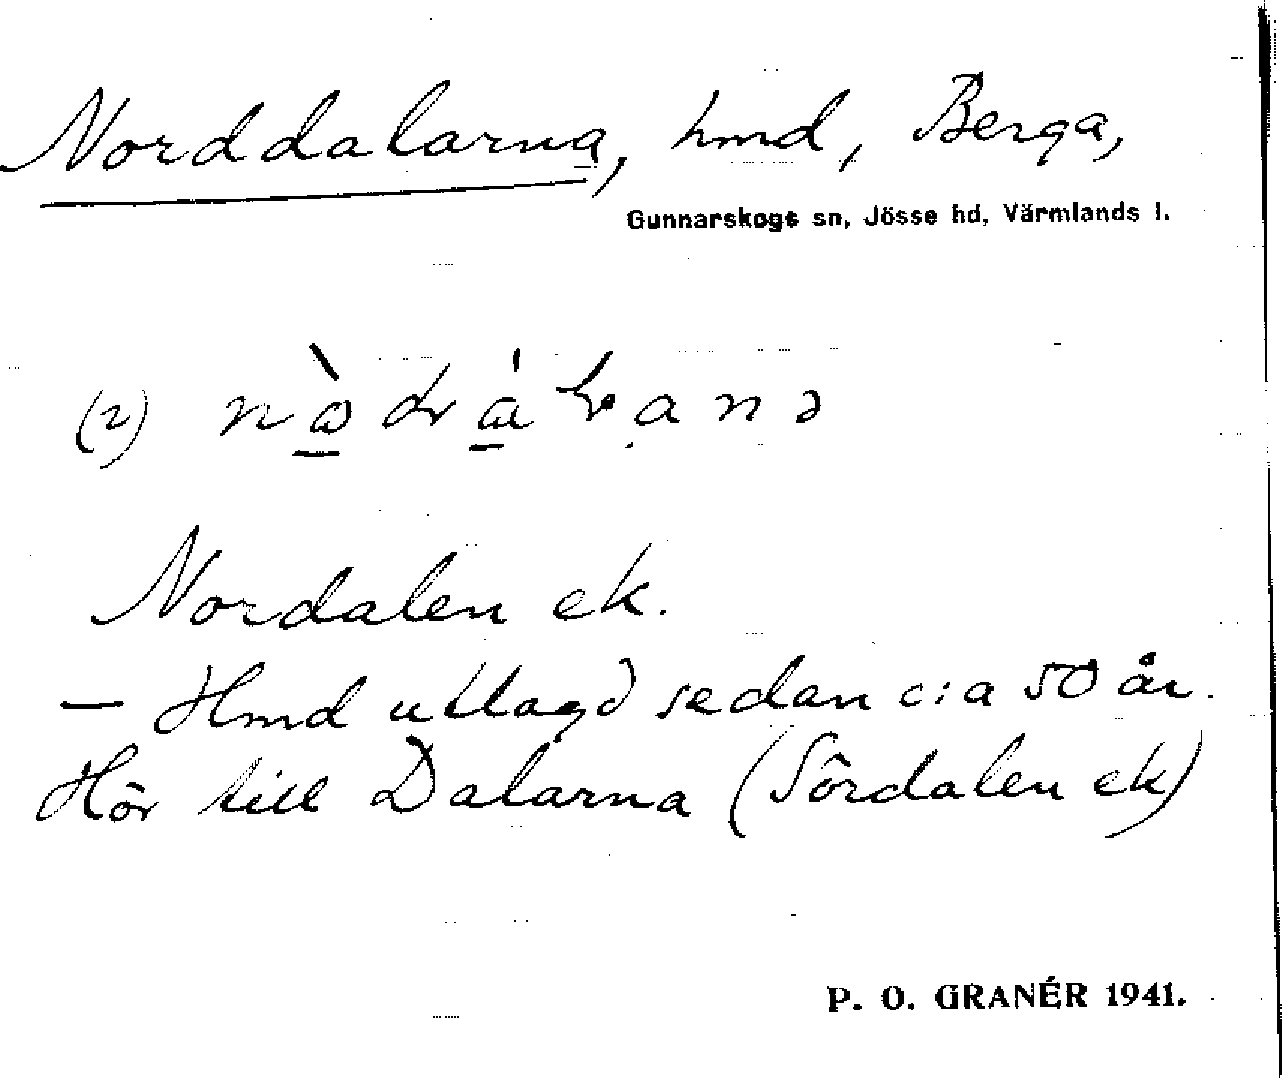 Norddalarna, hmd, Berga,
Gunnarskogs sn, Jösse hd, Värmlands l.
(2)
Nordalen ek.
— Hmd utlagd sedan c:a 50 år.
Hör till Dalarna (Sördalen ek)
P. O. GRANÉR 1941.